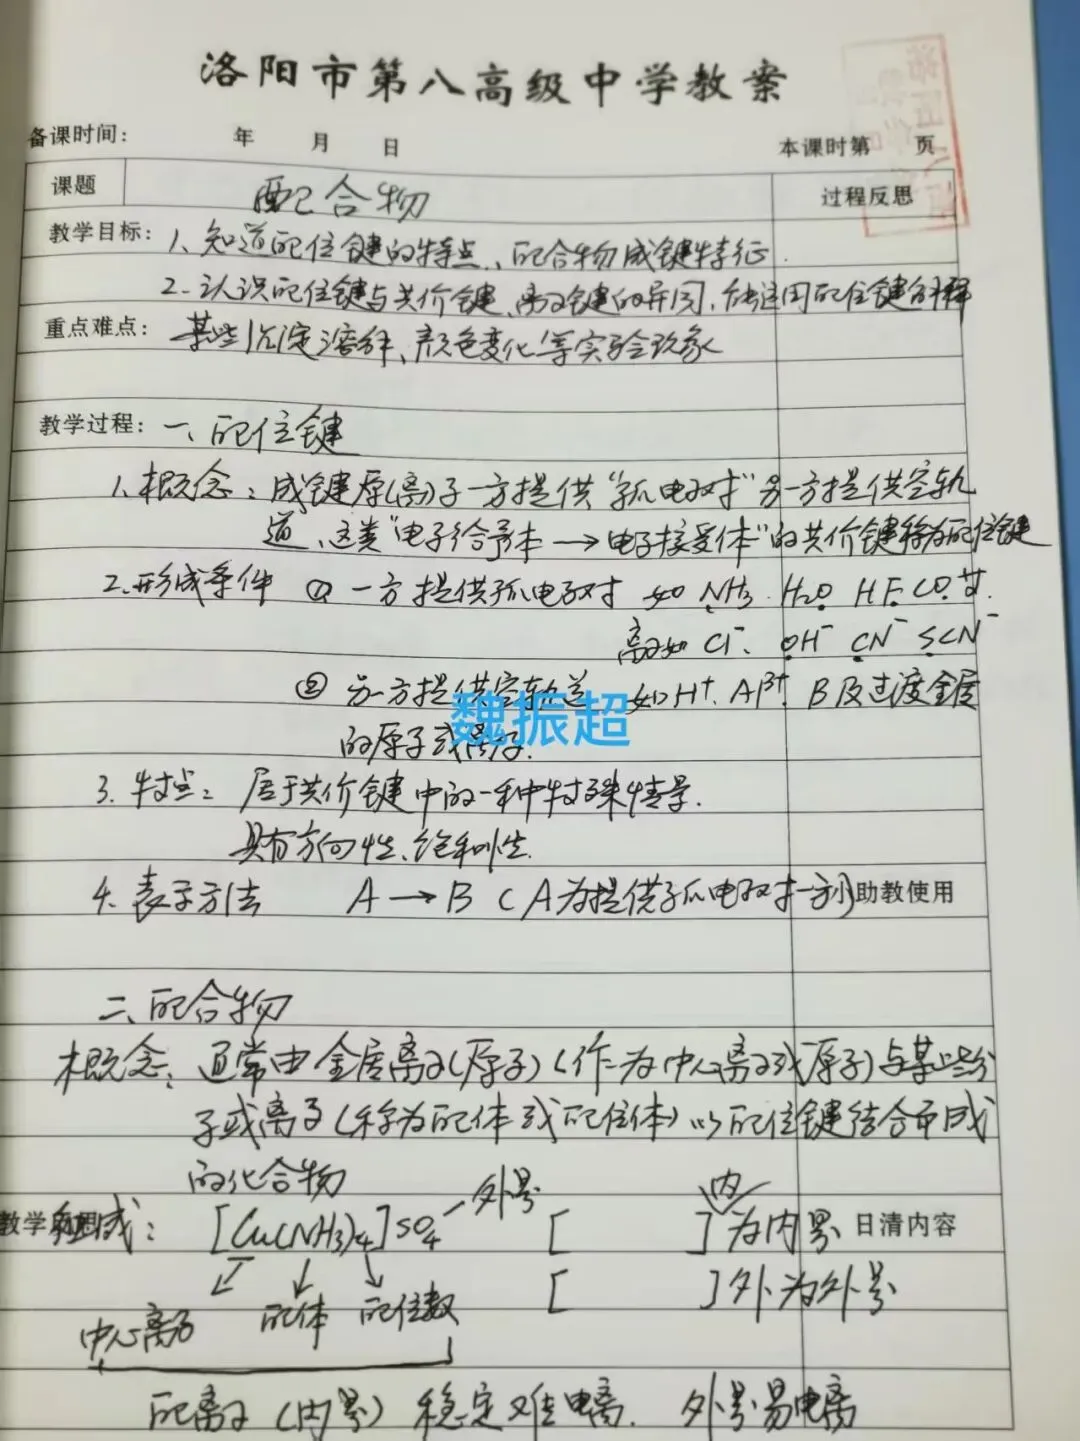 洛阳市第八高级中学教案
备课时间: 年 月 日 本课时第 页
课题 配合物 过程反思
教学目标: 1、知道配位键的特点、配合物成键特征
2、认识配位键与共价键、离子键的异同,能运用配位键解释
重点难点: 某些沉淀溶解、颜色变化等实验现象
教学过程: 一、配位键
1、概念:成键原(离)子一方提供“孤电子对”另一方提供空轨
道、这类“电子给予体→电子接受体”的共价键称为配位键
2、形成条件 ① 一方提供孤电子对 如 NH₃. H₂O HF. CO.等.
离子如 Cl⁻、OH⁻ CN⁻ SCN⁻
② 另一方提供空轨道 如H⁺. Al³⁺. B及过渡金属
魏振超
的原子或离子.
3. 特点: 属于共价键中的一种特殊情景.
具有方向性、饱和性.
4. 表示方法 A→B (A为提供孤电子对一方) 助教使用
二、配合物
概念:通常由金属离子(原子)(作为中心离子或原子)与某些分
子或离子(称为配体或配位体)以配位键结合而成
的化合物
教学反思 组成: [Cu(NH₃)₄]SO₄ 外界 [ 内 ]为内界 日清内容
[ ]外为外界
中心离子 配体 配位数
配离子(内界)稳定难电离. 外界易电离